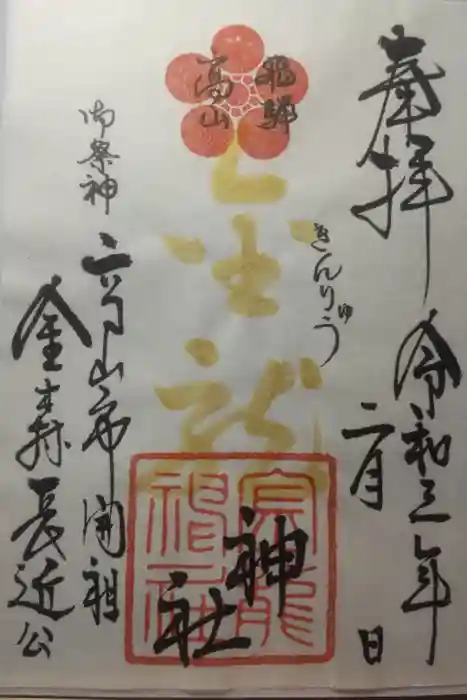 奉拝
令和三年
二月 日
飛騨
高山
きんりゅう
金龍
神社
御祭神
高山市開祖
金森長近公